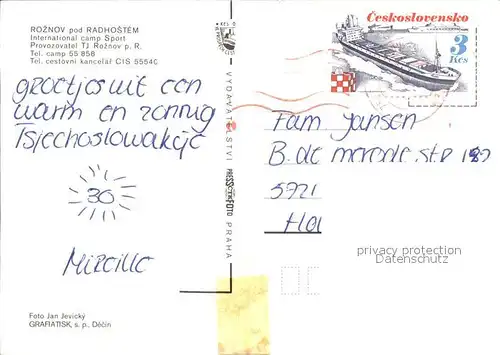 ROŽNOV pod RADHOŠTĚM
International camp Sport
Provozovatel TJ Rožnov p. R.
Tel. camp 55 858
Tel. cestovní kancelář CIS 5554C
groetjes uit een
warm en zonnig
Tsjechoslowakije
30
Mireille
Foto Jan Jevický
GRAFIATISK, s. p., Děčín
VYDAVATELSTVÍ PRESSFOTO PRAHA
Československo
3
Kčs
Fam Jansen
B. de merode str
5721
Hol
privacy protection
Datenschutz